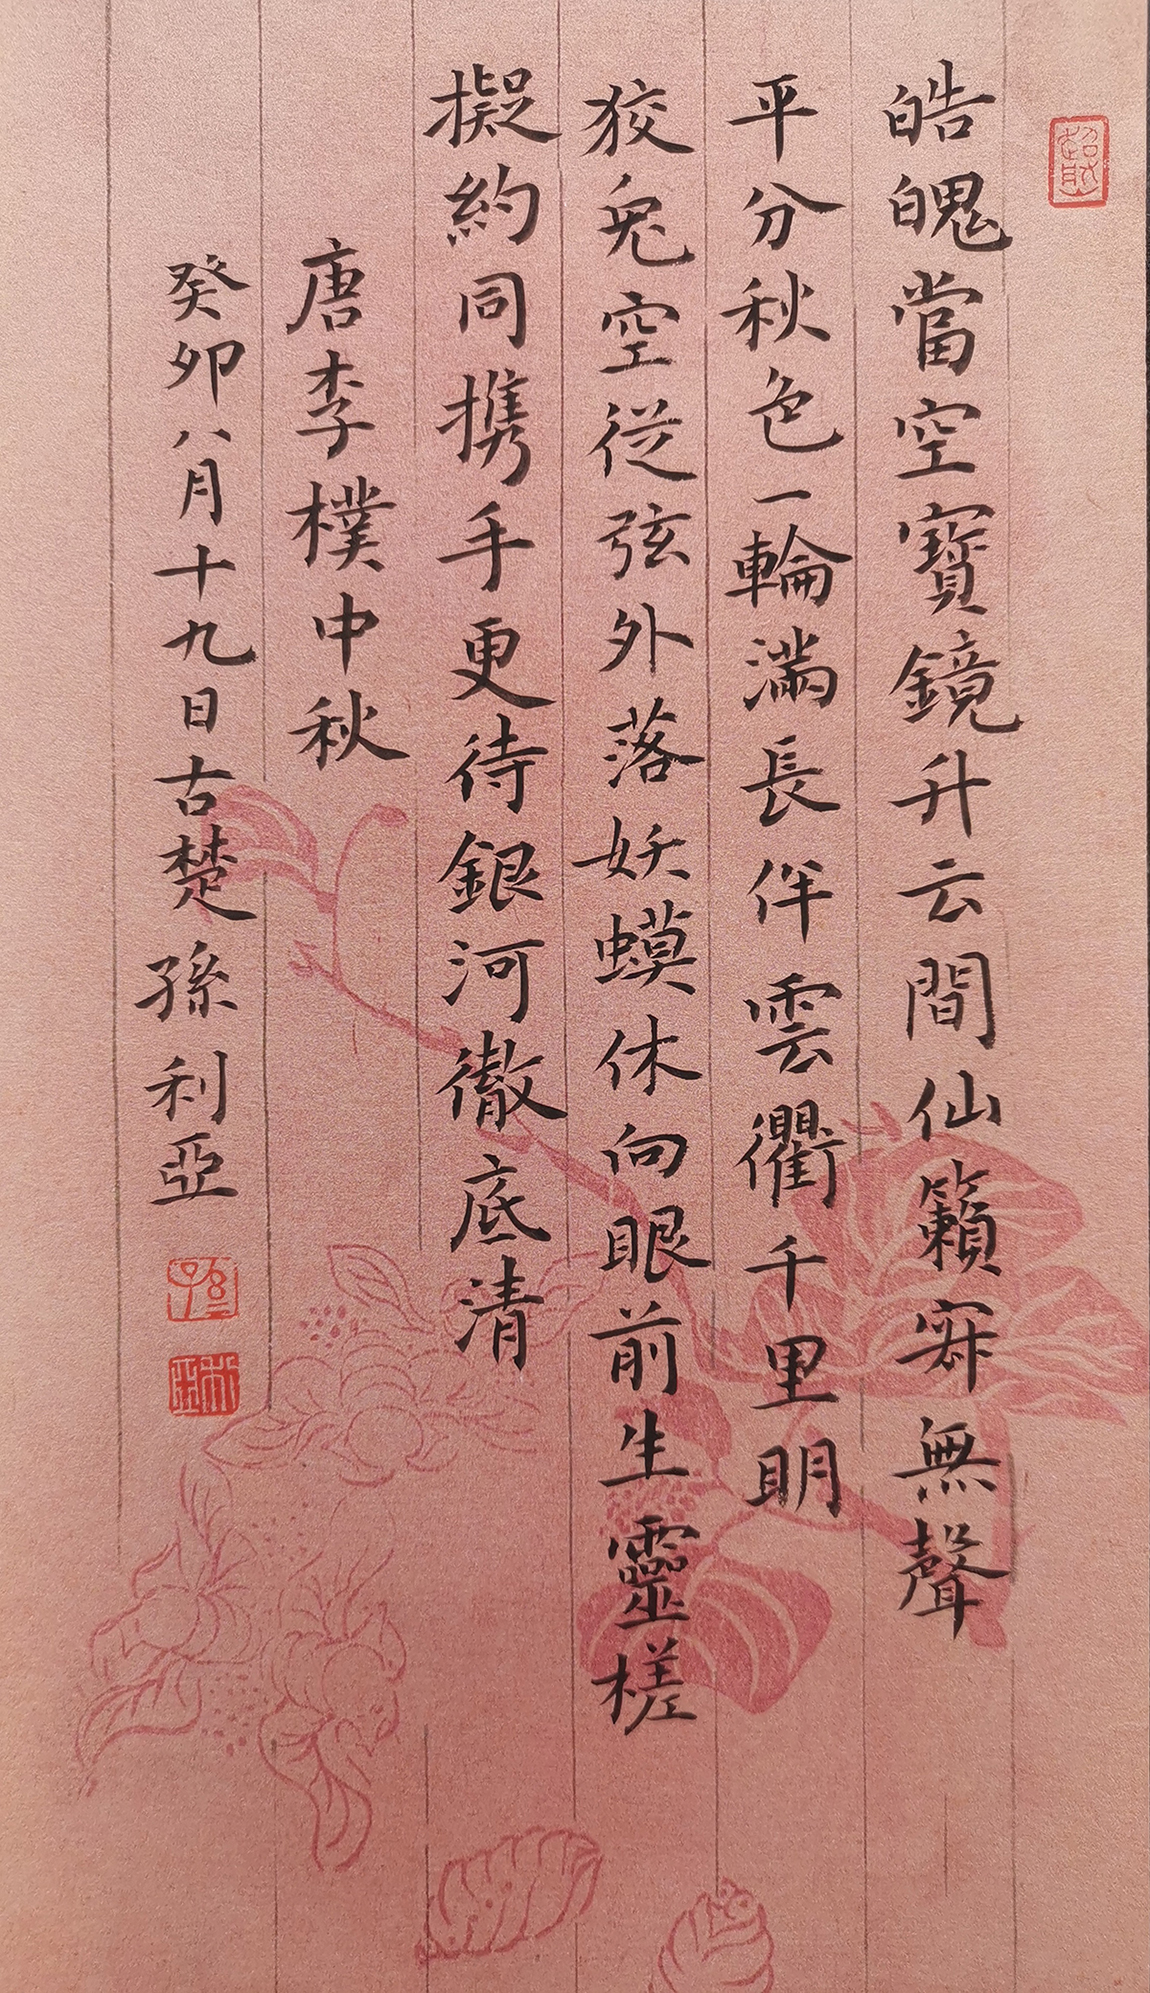 皓魄當空寶鏡升云間仙籟寂無聲
平分秋色一輪滿長伴雲衢千里明
狡兔空從弦外落妖蟆休向眼前生靈槎
擬約同攜手更待銀河徹底清
唐李樸中秋
癸卯八月十九日古楚孫利亞